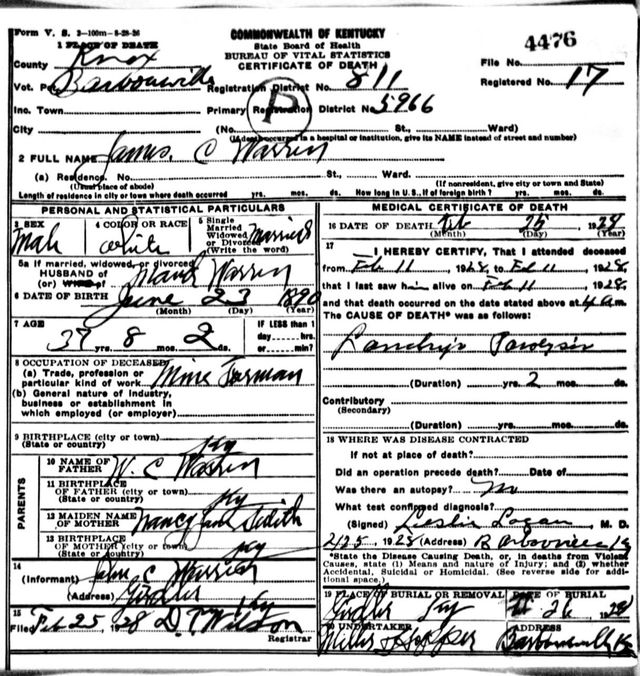 Form V. S. 2-100m-8-28-26
COMMONWEALTH OF KENTUCKY
State Board of Health
BUREAU OF VITAL STATISTICS
CERTIFICATE OF DEATH
4476
1 PLACE OF DEATH
County Knox
File No.
Vot. Pct. Barbourville
Registration District No. 811
Registered No. 17
Inc. Town
Primary Registration District No. 5966
P
City (No. St., Ward)
(If death occurred in a hospital or institution, give its NAME instead of street and number)
2 FULL NAME James C Warren
(a) Residence. No. St., Ward.
(Usual place of abode) (If nonresident, give city or town and State)
Length of residence in city or town where death occurred yrs. mos. ds. How long in U.S., if of foreign birth? yrs. mos. ds.
PERSONAL AND STATISTICAL PARTICULARS
3 SEX Male
4 COLOR OR RACE White
5 Single Married Widowed or Divorced (Write the word) Married
5a If married, widowed, or divorced
HUSBAND of
(or) WIFE of Warren
6 DATE OF BIRTH June 23 1890
(Month) (Day) (Year)
7 AGE 37 yrs. 8 mos. 2 ds.
IF LESS than 1 day hrs. or min.
8 OCCUPATION OF DECEASED
(a) Trade, profession or particular kind of work Mine Forman
(b) General nature of industry, business or establishment in which employed (or employer)
9 BIRTHPLACE (city or town)
(State or country) Ky
PARENTS
10 NAME OF FATHER W. C Warren
11 BIRTHPLACE OF FATHER (city or town)
(State or country) Ky
12 MAIDEN NAME OF MOTHER Nancy Jane
13 BIRTHPLACE OF MOTHER (city or town)
(State or country) Ky
14
(Informant) C Warren
(Address) Girdler Ky
15
Filed Feb 25, 1928 D. T Wilson
Registrar
MEDICAL CERTIFICATE OF DEATH
16 DATE OF DEATH Feb 25, 1928
(Month) (Day) (Year)
17
I HEREBY CERTIFY, That I attended deceased
from Feb 11, 1928, to Feb 11, 1928,
that I last saw him alive on Feb 11, 1928,
and that death occurred on the date stated above at 4 am.
The CAUSE OF DEATH* was as follows:
(Duration) yrs. 2 mos. ds.
Contributory
(Secondary)
(Duration) yrs. mos. ds.
18 WHERE WAS DISEASE CONTRACTED
If not at place of death?
Did an operation precede death? Date of
Was there an autopsy? no
What test confirmed diagnosis?
(Signed) Leslie Logan, M. D.
2/25, 1928 (Address) Barbourville Ky
*State the Disease Causing Death, or, in deaths from Violent
Causes, state (1) Means and nature of Injury; and (2) whether
Accidental, Suicidal or Homicidal. (See reverse side for addi-
tional space.)
19 PLACE OF BURIAL OR REMOVAL Girdler Ky
DATE OF BURIAL Feb 26, 1928
20 UNDERTAKER
ADDRESS Barbourville Ky